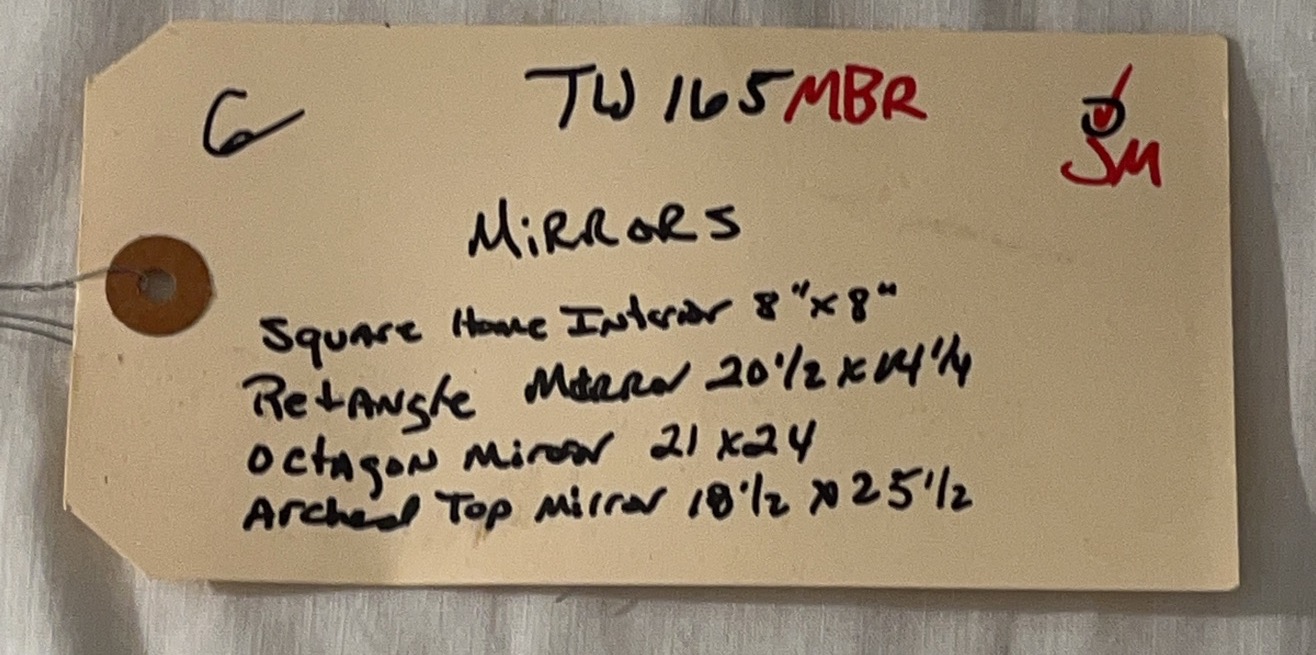 G TW 165 MBR
JM
MiRRORS
Square Home Interior 8"x8"
RetANgle Mirror 20 1/2 x 14 1/4
OctAgoN Mirror 21 x 24
Arched Top Mirror 18 1/2 x 25 1/2